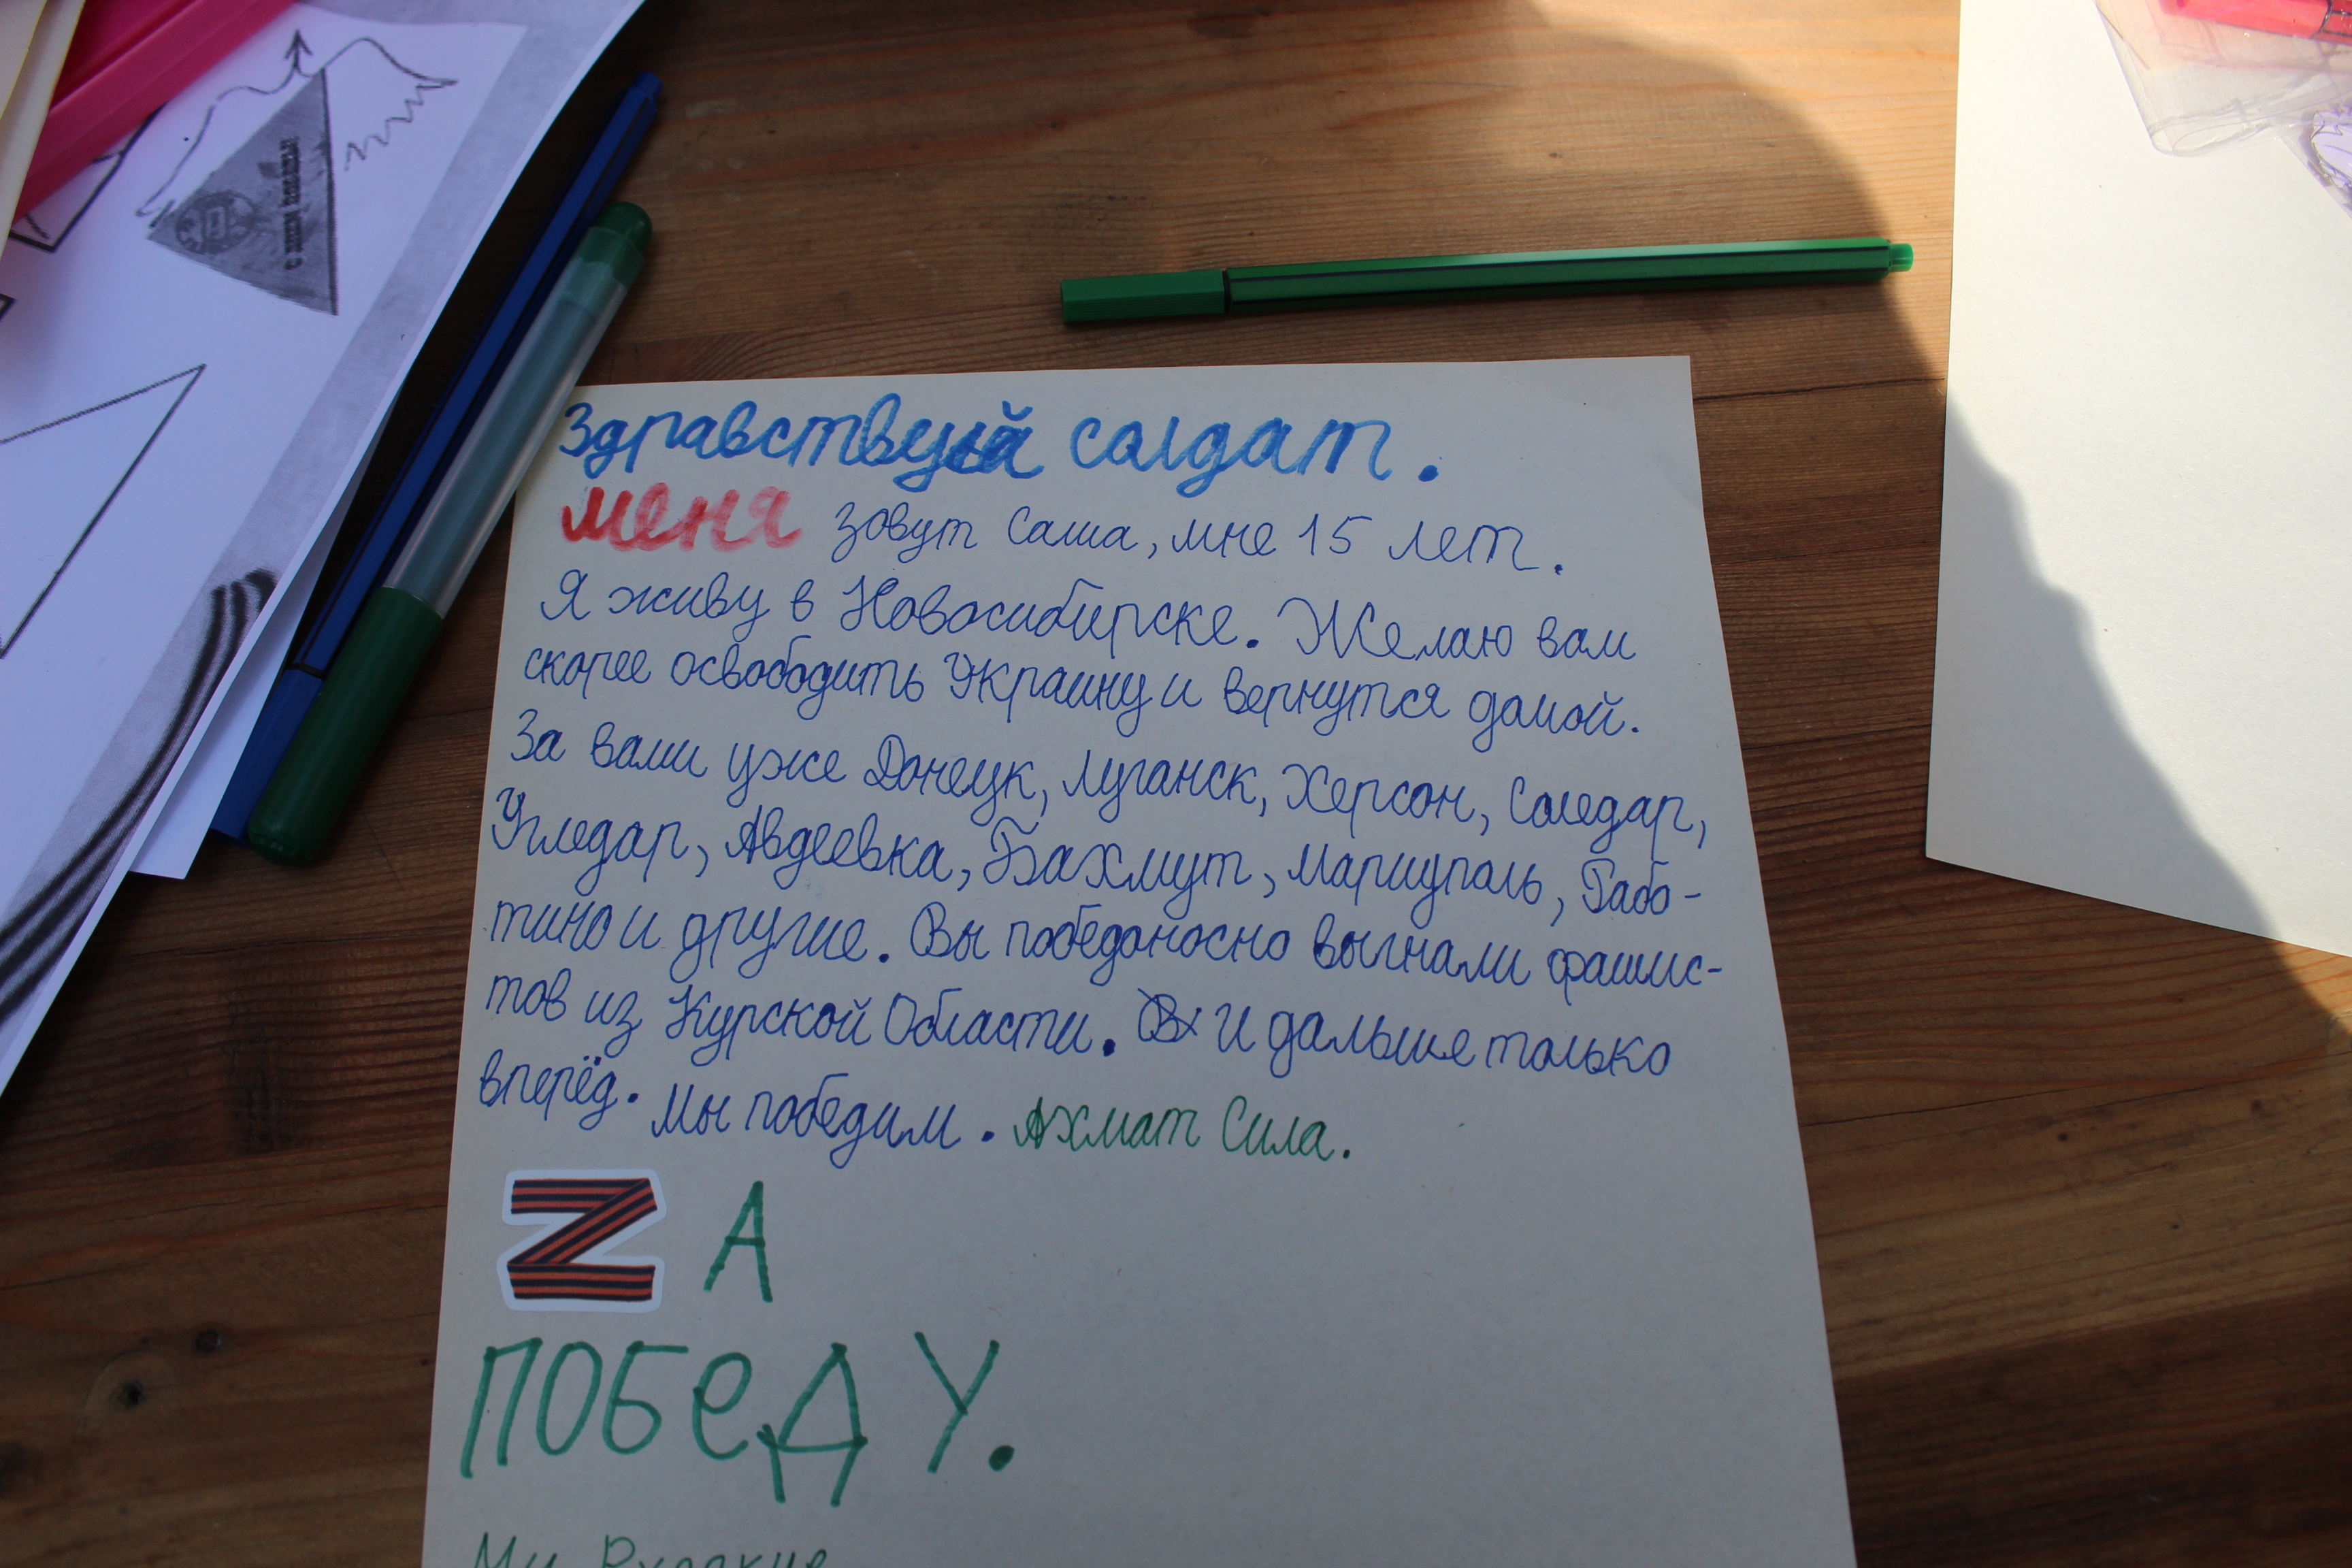 Здравствуй солдат.
меня зовут Саша, мне 15 лет.
Я живу в Новосибирске. Желаю вам
скорее освободить Украину и вернутся домой.
За вами уже Донецк, Луганск, Херсон, Соледар,
Угледар, Авдеевка, Бахмут, Мариуполь, Рабо-
тино и другие. Вы победоносно выгнали фашис-
тов из Курской Области. И дальше только
вперёд. Мы победим. Ахмат Сила.
ZА
ПОБеДУ.